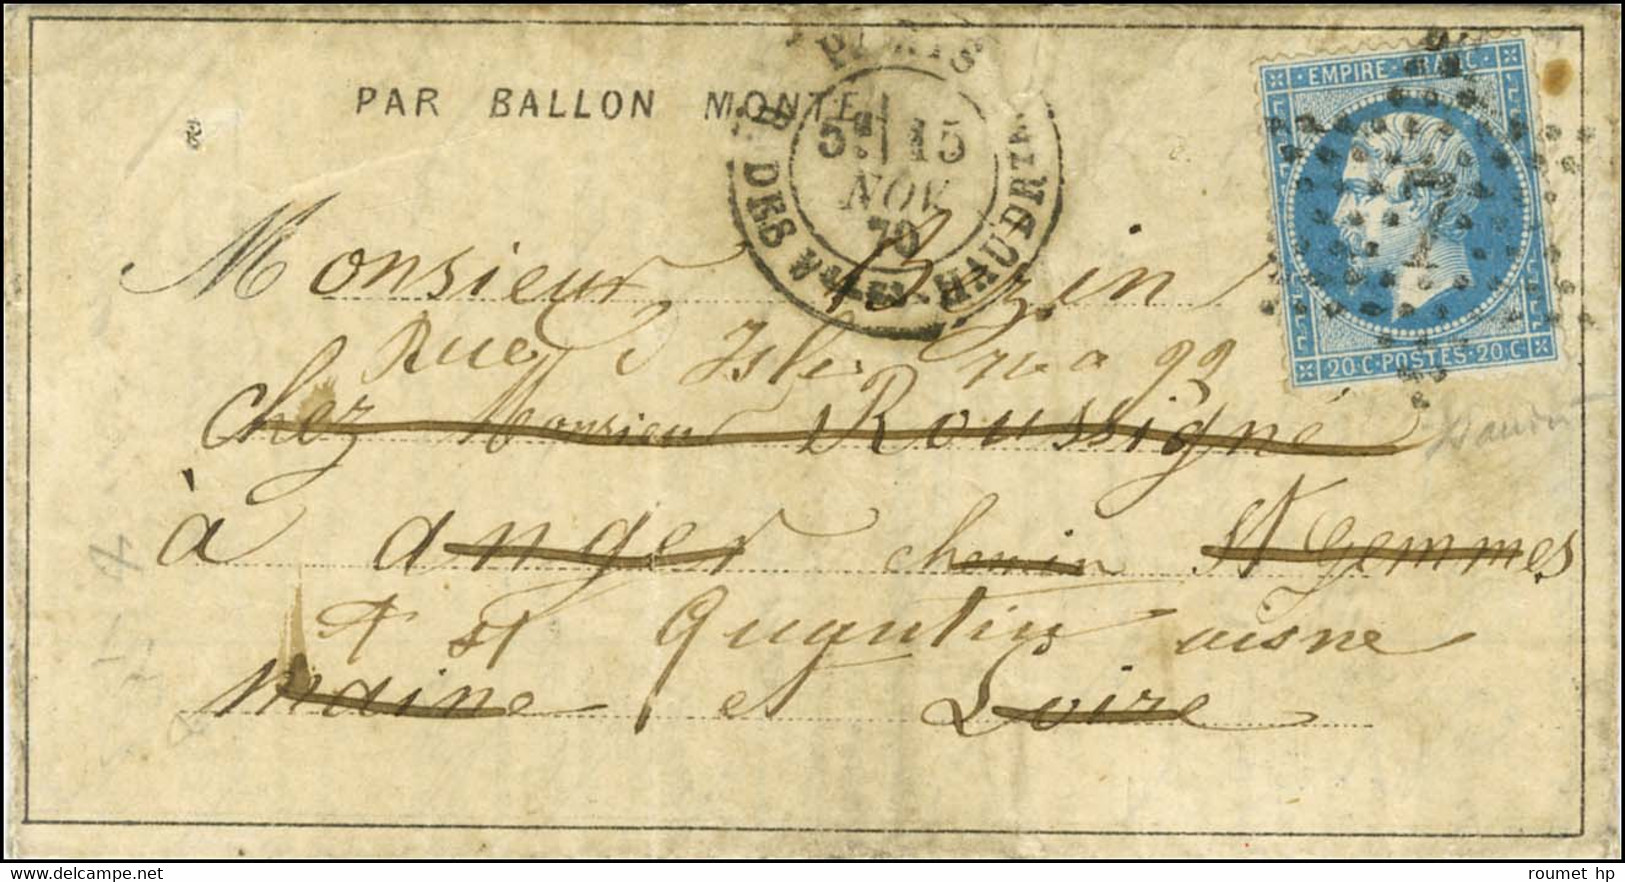 PAR BALLON MONTÉ
PARIS
R. DES Vlles HAUDRtes
5E 15
NOV.
70
EMPIRE FRANC
20 C POSTES 20 C
Monsieur Bazin
Rue d Isle no 99
chez Monsieur Roussigné
à anger chemin St gemmes
St Quantin aisne
maine et Loire
roumet hp